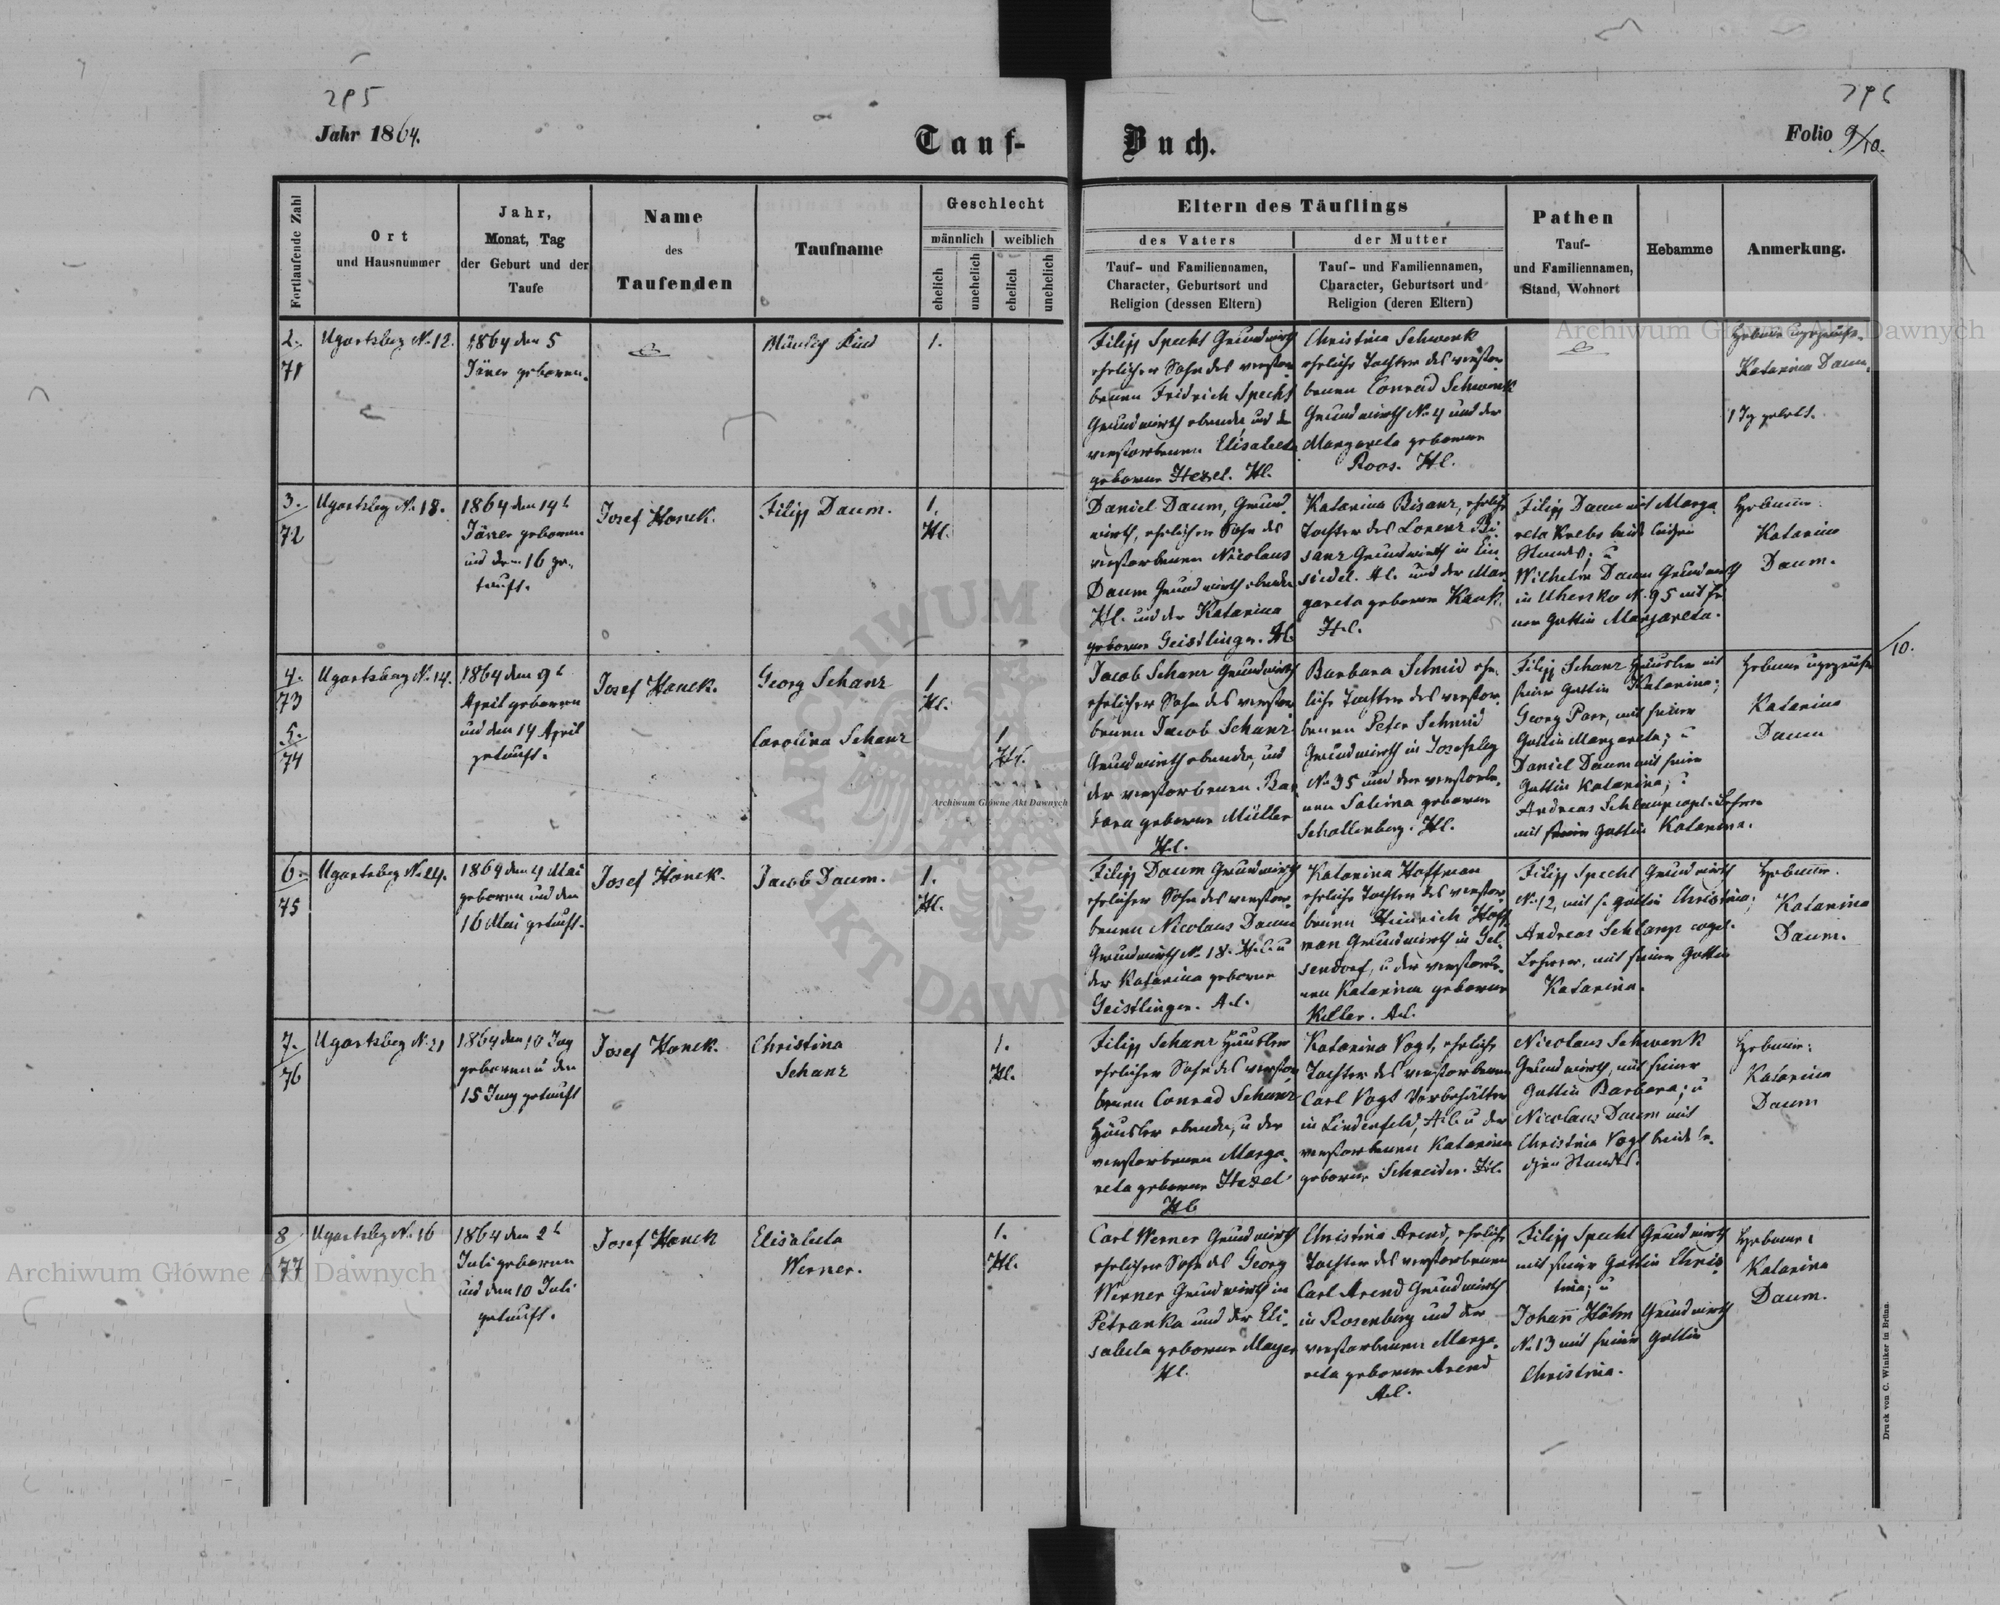 295
296
Jahr 1864.
Tauf-
Buch.
Folio 9/10.
Fortlaufende Zahl
Ort
und Hausnummer
Jahr,
Monat, Tag
der Geburt und der
Taufe
Name
des
Taufenden
Taufname
Geschlecht
männlich
weiblich
ehelich
unehelich
ehelich
unehelich
Eltern des Täuflings
des Vaters
Tauf- und Familiennamen,
Character, Geburtsort und
Religion (dessen Eltern)
der Mutter
Tauf- und Familiennamen,
Character, Geburtsort und
Religion (deren Eltern)
Pathen
Tauf-
und Familiennamen,
Stand, Wohnort
Hebamme
Anmerkung.
2.
71
Ugartsberg No 12.
1864 den 5
Jäner geboren.
1.
Filipp Specht Grundwirth
ehelicher Sohn des verstor
benen Fridrich Specht
Grundwirth ebenda, und der
verstorbenen Elisabeta
geborne Hezel. Hl.
Christina Schwenk
eheliche Tochter des verstor
benen Conrad Schwenk
Grundwirth No 4 und der
Margareta geborene
Roos. Hl.
Katarina Daum.
3.
72
Ugartsberg No 18.
1864 den 14t
Jäner geboren
und den 16 ge-
tauft.
Josef Hanek.
Filipp Daum.
1.
Hl.
Daniel Daum, Grund
wirth, ehelicher Sohn des
verstorbenen Nicolaus
Daum Grundwirth ebenda
Hl. und der Katarina
geborne Geistlinger. Hl.
Katarina Bisanz, eheliche
Tochter des Lorenz Bi
sanz Grundwirth in Ein
siedel. Hl. und der Mar
gareta geborne Kauk.
Hl.
Filipp Daum mit Marga
reta Krebs beide ledigen
Standes; u
Wilhelm Daum Grundwirth
in Uhersko No 95 mit sei
ner Gattin Margareta.
Hebamme:
Katarina
Daum.
10.
4.
73
5.
74
Ugartsberg No 14.
1864 den 9t
April geboren
und den 14 April
getauft.
Josef Hanek.
Georg Schanz
Carolina Schanz
1
Hl.
1
Hl.
Jacob Schanz Grundwirth
ehelicher Sohn des verstor
benen Jacob Schanz
Grundwirth ebenda, und
der verstorbenen Bar
bara geborne Müller
Hl.
Barbara Schmid ehe
liche Tochter des verstor
benen Peter Schmid
Grundwirth in Josefsberg
No 35 und der verstorbe
nen Sabina geborene
Schallenberg. Hl.
Filipp Schanz Häusler mit
seiner Gattin Katarina;
Georg Parr, mit seiner
Gattin Margareta; u
Daniel Daum mit seiner
Gattin Katarina; u
mit seiner Gattin Katarina.
Katarina
Daum
6.
75
Ugartsberg No 24.
1864 den 4 Mai
geboren und den
16 Mai getauft.
Josef Hanek.
Jacob Daum.
1.
Hl.
Filipp Daum Grundwirth
ehelicher Sohn des verstor
benen Nicolaus Daum
Grundwirth No 18. Hl. u
der Katarina geborne
Geistlinger. Hl.
Katarina Hoffman
eheliche Tochter des verstor
benen Heinrich Hoff
man Grundwirth in Gel
sendorf, u der verstorbe
nen Katarina geborne
Keller. Hl.
Filipp Specht Grundwirth
No 12, mit s. Gattin Christina;
Lehrer, mit seiner Gattin
Katarina.
Hebamme.
Katarina
Daum.
7.
76
Ugartsberg No 21
1864 den 10 Juny
geboren u den
15 Juny getauft
Josef Hanek.
Christina
Schanz
1.
Hl.
Filipp Schanz Häusler
ehelicher Sohn des verstor
benen Conrad Schanz
Häusler ebenda, u der
verstorbenen Marga
reta geborne Hezel
Hl
Katarina Vogt, eheliche
Tochter des verstorbenen
in Lindenfeld, Hl. u der
verstorbenen Katarina
geborne Schneider. Hl.
Nicolaus Schwenk
Grundwirth, mit seiner
Gattin Barbara; u
Nicolaus Daum mit
Christina Vogt beide le-
digen Standes.
Hebamme:
Katarina
Daum
8
77
Ugartsberg No 16
1864 den 2t
Juli geboren
und den 10 Juli
getauft.
Josef Hanek
Elisabeta
Werner.
1.
Hl.
Carl Werner Grundwirth
ehelicher Sohn des Georg
Werner Grundwirth in
Petranka und der Eli
sabeta geborne Mayer
Hl.
Christina Arend, eheliche
Tochter des verstorbenen
Carl Arend Grundwirth
in Rosenberg und der
verstorbenen Marga
reta geborene Arend
Hl.
Filipp Specht Grundwirth
mit seiner Gattin Chris
tina; u
Johann Höhn Grundwirth
No 13 mit seiner Gattin
Christina.
Hebamme:
Katarina
Daum.
Druck von C. Winiker in Brünn.
Archiwum Główne Akt Dawnych
Archiwum Główne Akt Dawnych
Archiwum Główne Akt Dawnych
ARCHIWUM GŁÓWNE AKT DAWNYCH